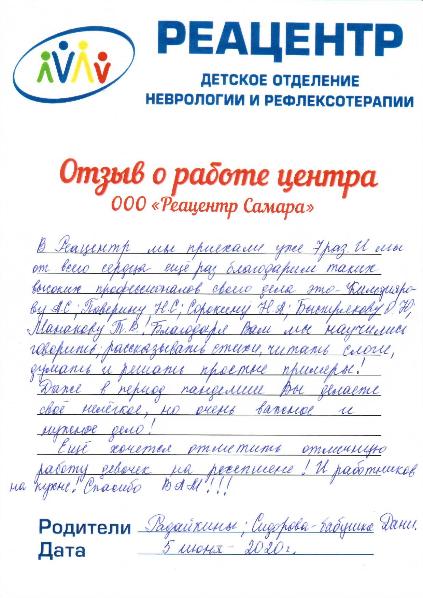 РЕАЦЕНТР
ДЕТСКОЕ ОТДЕЛЕНИЕ
НЕВРОЛОГИИ И РЕФЛЕКСОТЕРАПИИ
Отзыв о работе центра
ООО «Реацентр Самара»
В Реацентр мы приехали уже 7 раз. И мы
от всего сердца ещё раз благодарим таких
высоких профессионалов своего дела это-
ву АС; Поверину НС; Сорокину НА; О.Ю,
Манакову Т.В. Благодаря Вам мы научились
говорить, рассказывать стихи, читать слоги,
думать и решать простые примеры!
Даже в период пандемии Вы делаете
своё нелёгкое, но очень важное и
нужное дело!
Ещё хочется отметить отличную
работу девочек на ресепшене! И работников
на кухне! Спасибо ВАМ!!!
Родители Радайкины; Сидорова-бабушка Дани.
Дата 5 июня-2020г.